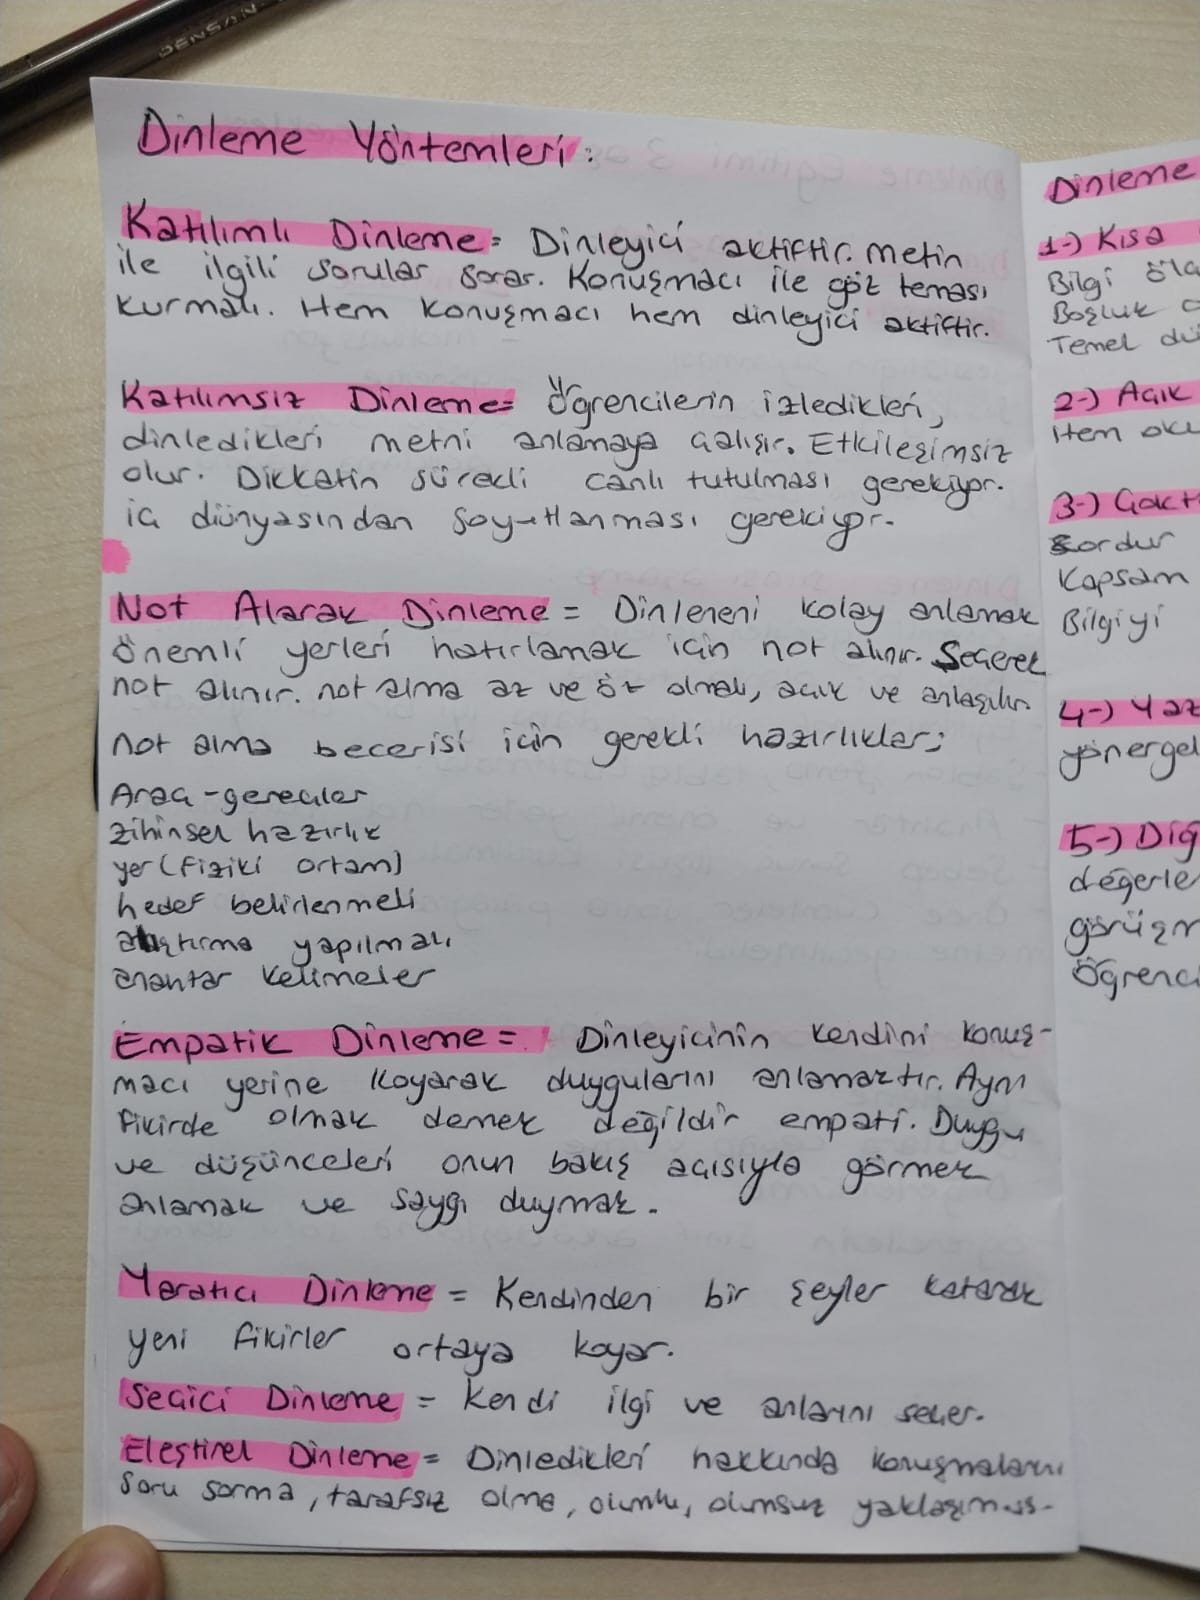 PENSAN
Dinleme Yöntemleri:
Katılımlı Dinleme= Dinleyici aktiftir. metin
ile ilgili sorular sorar. Konuşmacı ile göz teması
kurmalı. Hem konuşmacı hem dinleyici aktiftir.
Katılımsız Dinleme= Öğrencilerin izledikleri,
dinledikleri metni anlamaya çalışır. Etkileşimsiz
olur. Dikkatin sürekli canlı tutulması gerekiyor.
iç dünyasından soyutlanması gerekiyor.
Not Alarak Dinleme = Dinleneni kolay anlamak
önemli yerleri hatırlamak için not alınır. Seçerek
not alınır. not alma az ve öz olmalı, açık ve anlaşılır.
not alma becerisi için gerekli hazırlıklar;
Araç-gereçler
zihinsel hazırlık
yer (fiziki ortam)
hedef belirlenmeli
alıştırma yapılmalı
anahtar kelimeler
Empatik Dinleme = Dinleyicinin kendini konuş-
macı yerine koyarak duygularını anlamaktır. Aynı
fikirde olmak demek değildir empati. Duygu
ve düşünceleri onun bakış açısıyla görmek
anlamak ve saygı duymak.
Yaratıcı Dinleme = Kendinden bir şeyler katarak
yeni fikirler ortaya koyar.
Seçici Dinleme = Kendi ilgi ve anlarını seçer.
Eleştirel Dinleme = Dinledikleri hakkında konuşmalarını
soru sorma, tarafsız olma, olumlu, olumsuz
Dinleme
1-) Kısa
Bilgi
Boşluk
Temel
2-) Açık
Hem
3-)
Kapsam
Bilgiyi
4-)
5-)